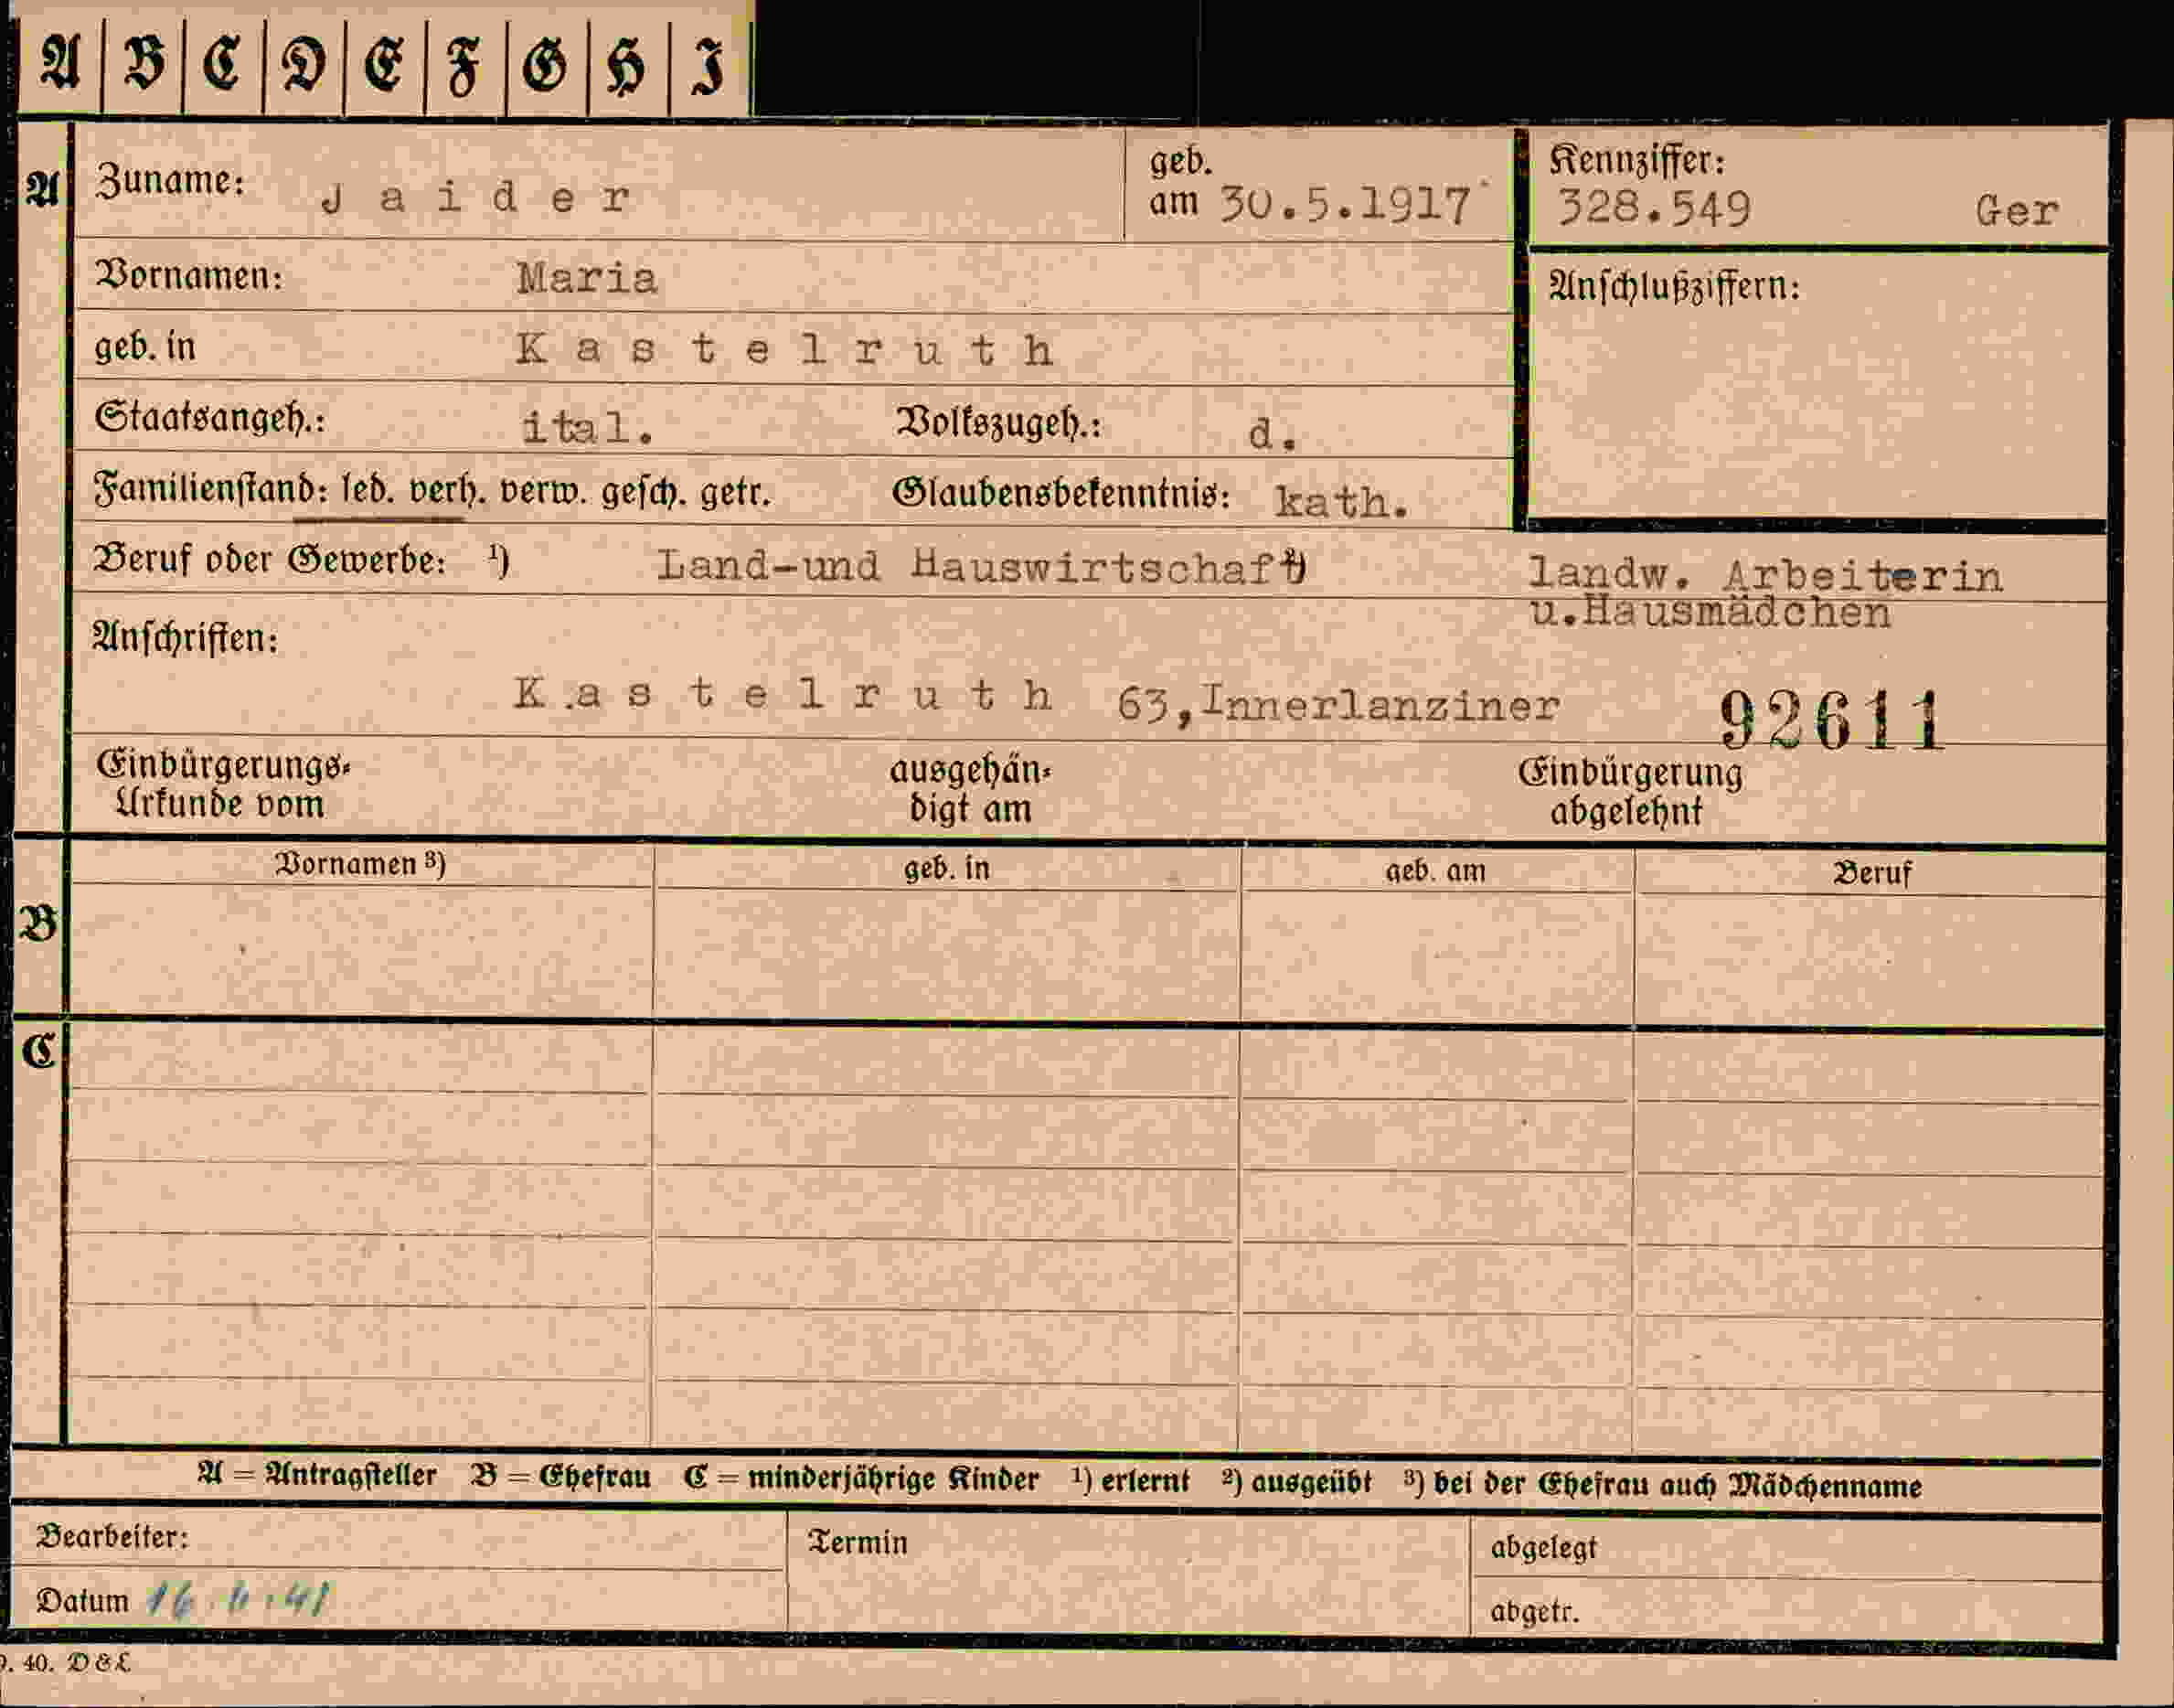 A B C D E F G H I
A
Zuname: Jaider
geb. am 30.5.1917
Kennziffer: 328.549 Ger
Vornamen: Maria
Anschlußziffern:
geb. in Kastelruth
Staatsangeh.: ital. Volkszugeh.: d.
Familienstand: led. verh. verw. gesch. getr. Glaubensbekenntnis: kath.
Beruf oder Gewerbe: ¹) Land-und Hauswirtschaft ²) landw. Arbeiterin
u.Hausmädchen
Anschriften:
Kastelruth 63,Innerlanziner 92611
Einbürgerungs- ausgehän- Einbürgerung
Urkunde vom digt am abgelehnt
Vornamen ³) geb. in geb. am Beruf
B
C
A = Antragsteller B = Ehefrau C = minderjährige Kinder ¹) erlernt ²) ausgeübt ³) bei der Ehefrau auch Mädchenname
Bearbeiter: Termin abgelegt
Datum 16. .41 abgetr.
. 40. D & L